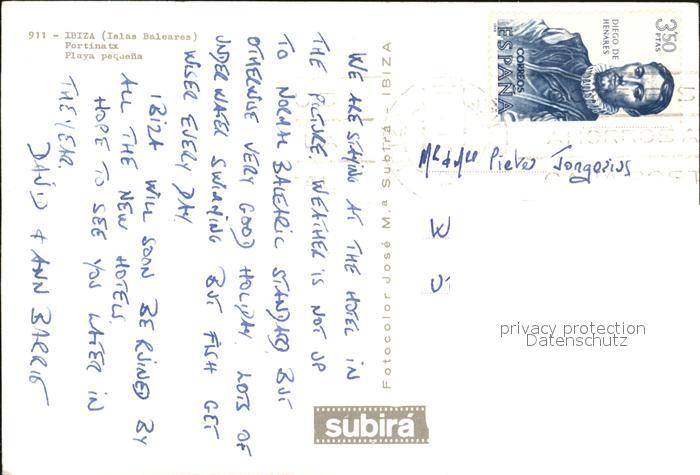 911 - IBIZA (Islas Baleares)
Portinatx
Playa pequeña
WE ARE STAYING AT THE HOTEL IN
THE PICTURE. WEATHER IS NOT UP
TO NORMAL BALEARIC STANDARD, BUT
OTHERWISE VERY GOOD HOLIDAY. LOTS OF
UNDER WATER SWIMMING BUT FISH GET
WISER EVERY DAY.
IBIZA WILL SOON BE RUINED BY
ALL THE NEW HOTELS.
HOPE TO SEE YOU LATER IN
THE YEAR.
DAVID + ANN BARRIG
Fotocolor José M.ª Subirá - IBIZA
subirá
DIEGO DE
HENARES
3'50
PTAS
CORREOS
ESPAÑA
Pieter Jongerius
W
privacy protection
Datenschutz